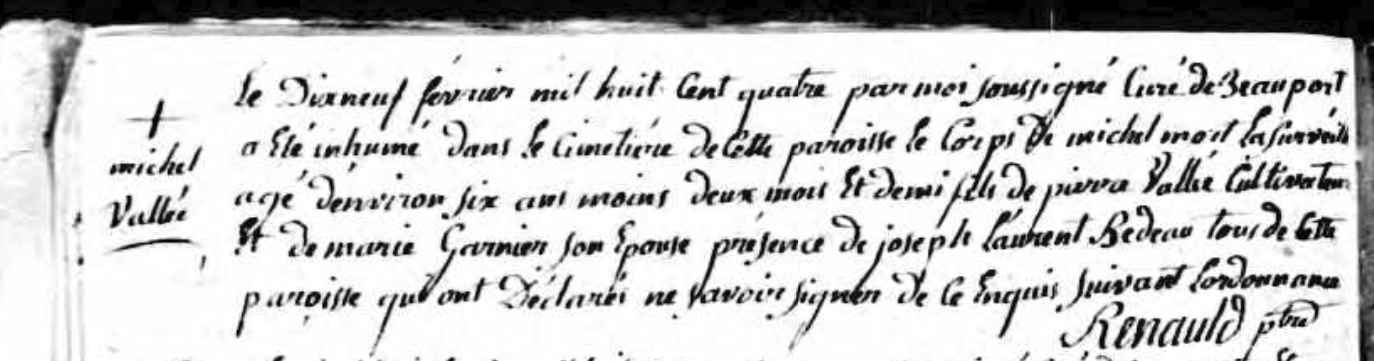 +
michel
Vallée
Le Dixneuf février mil huit Cent quatre par moi soussigné Curé de Beauport
a Eté inhumé dans le Cimetiére de Cette paroisse le Corps de michel mort la surveille
agé d'énviron six ans moins deux mois Et demi fils de pierre Vallée Cultivateur
Et de marie Garnier son Epouse présence de joseph Laurent Bedeau tous de Cette
paroisse qui ont Déclarés ne savoir signer de Ce Enquis suivant Lordonnance
Renauld ptre